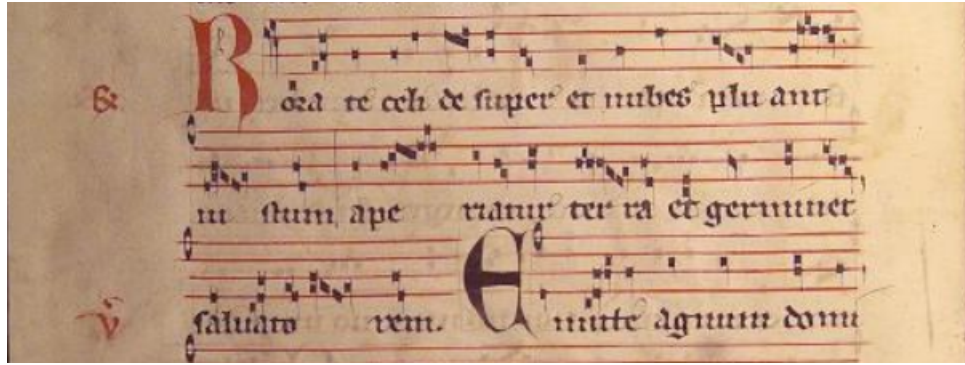 Rora te celi de super et nubes plu ant
iu stum ape riatur ter ra et germinet
saluato rem. Emitte agnum domi